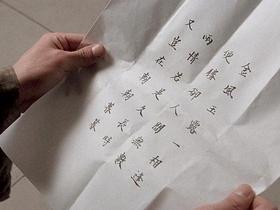 金風玉露一相逢
便勝卻人間無數
兩情若是久長時
又豈在朝朝暮暮